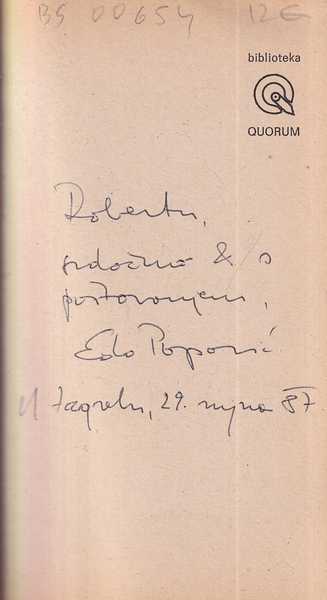 BS 00654 12€
biblioteka
QUORUM
Robertu,
srdačno & s
poštovanjem,
Edo Popović
U Zagrebu, 29. rujna 87